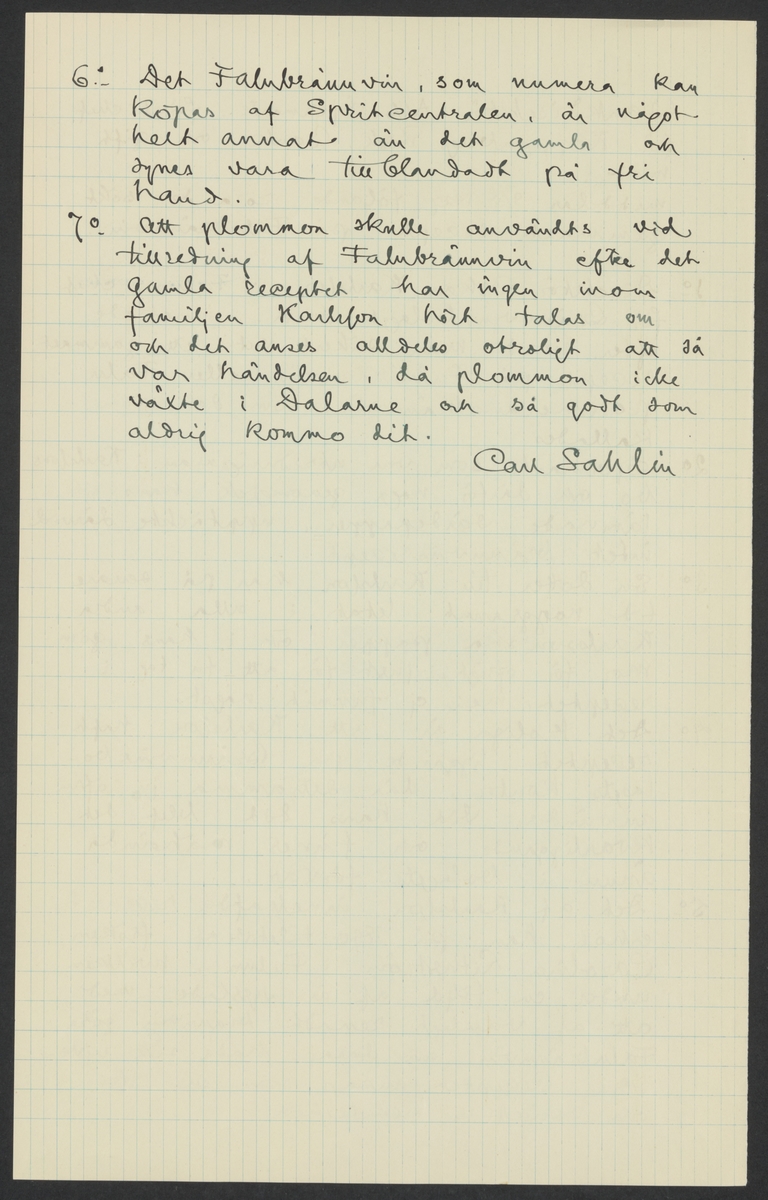 6:o Det Falubrännvin, som numera kan
köpas af Spritcentralen, är något
helt annat än det gamla och
synes vara tillblandadt på fri
hand.
7o Att plommon skulle användts vid
tillredning af Falubrännvin efter det
gamla receptet har ingen inom
familjen Karlsson hört talas om
och det anses alldeles otroligt att så
var händelsen, då plommon icke
växte i Dalarne och så godt som
aldrig kommo dit.
Carl Sahlin